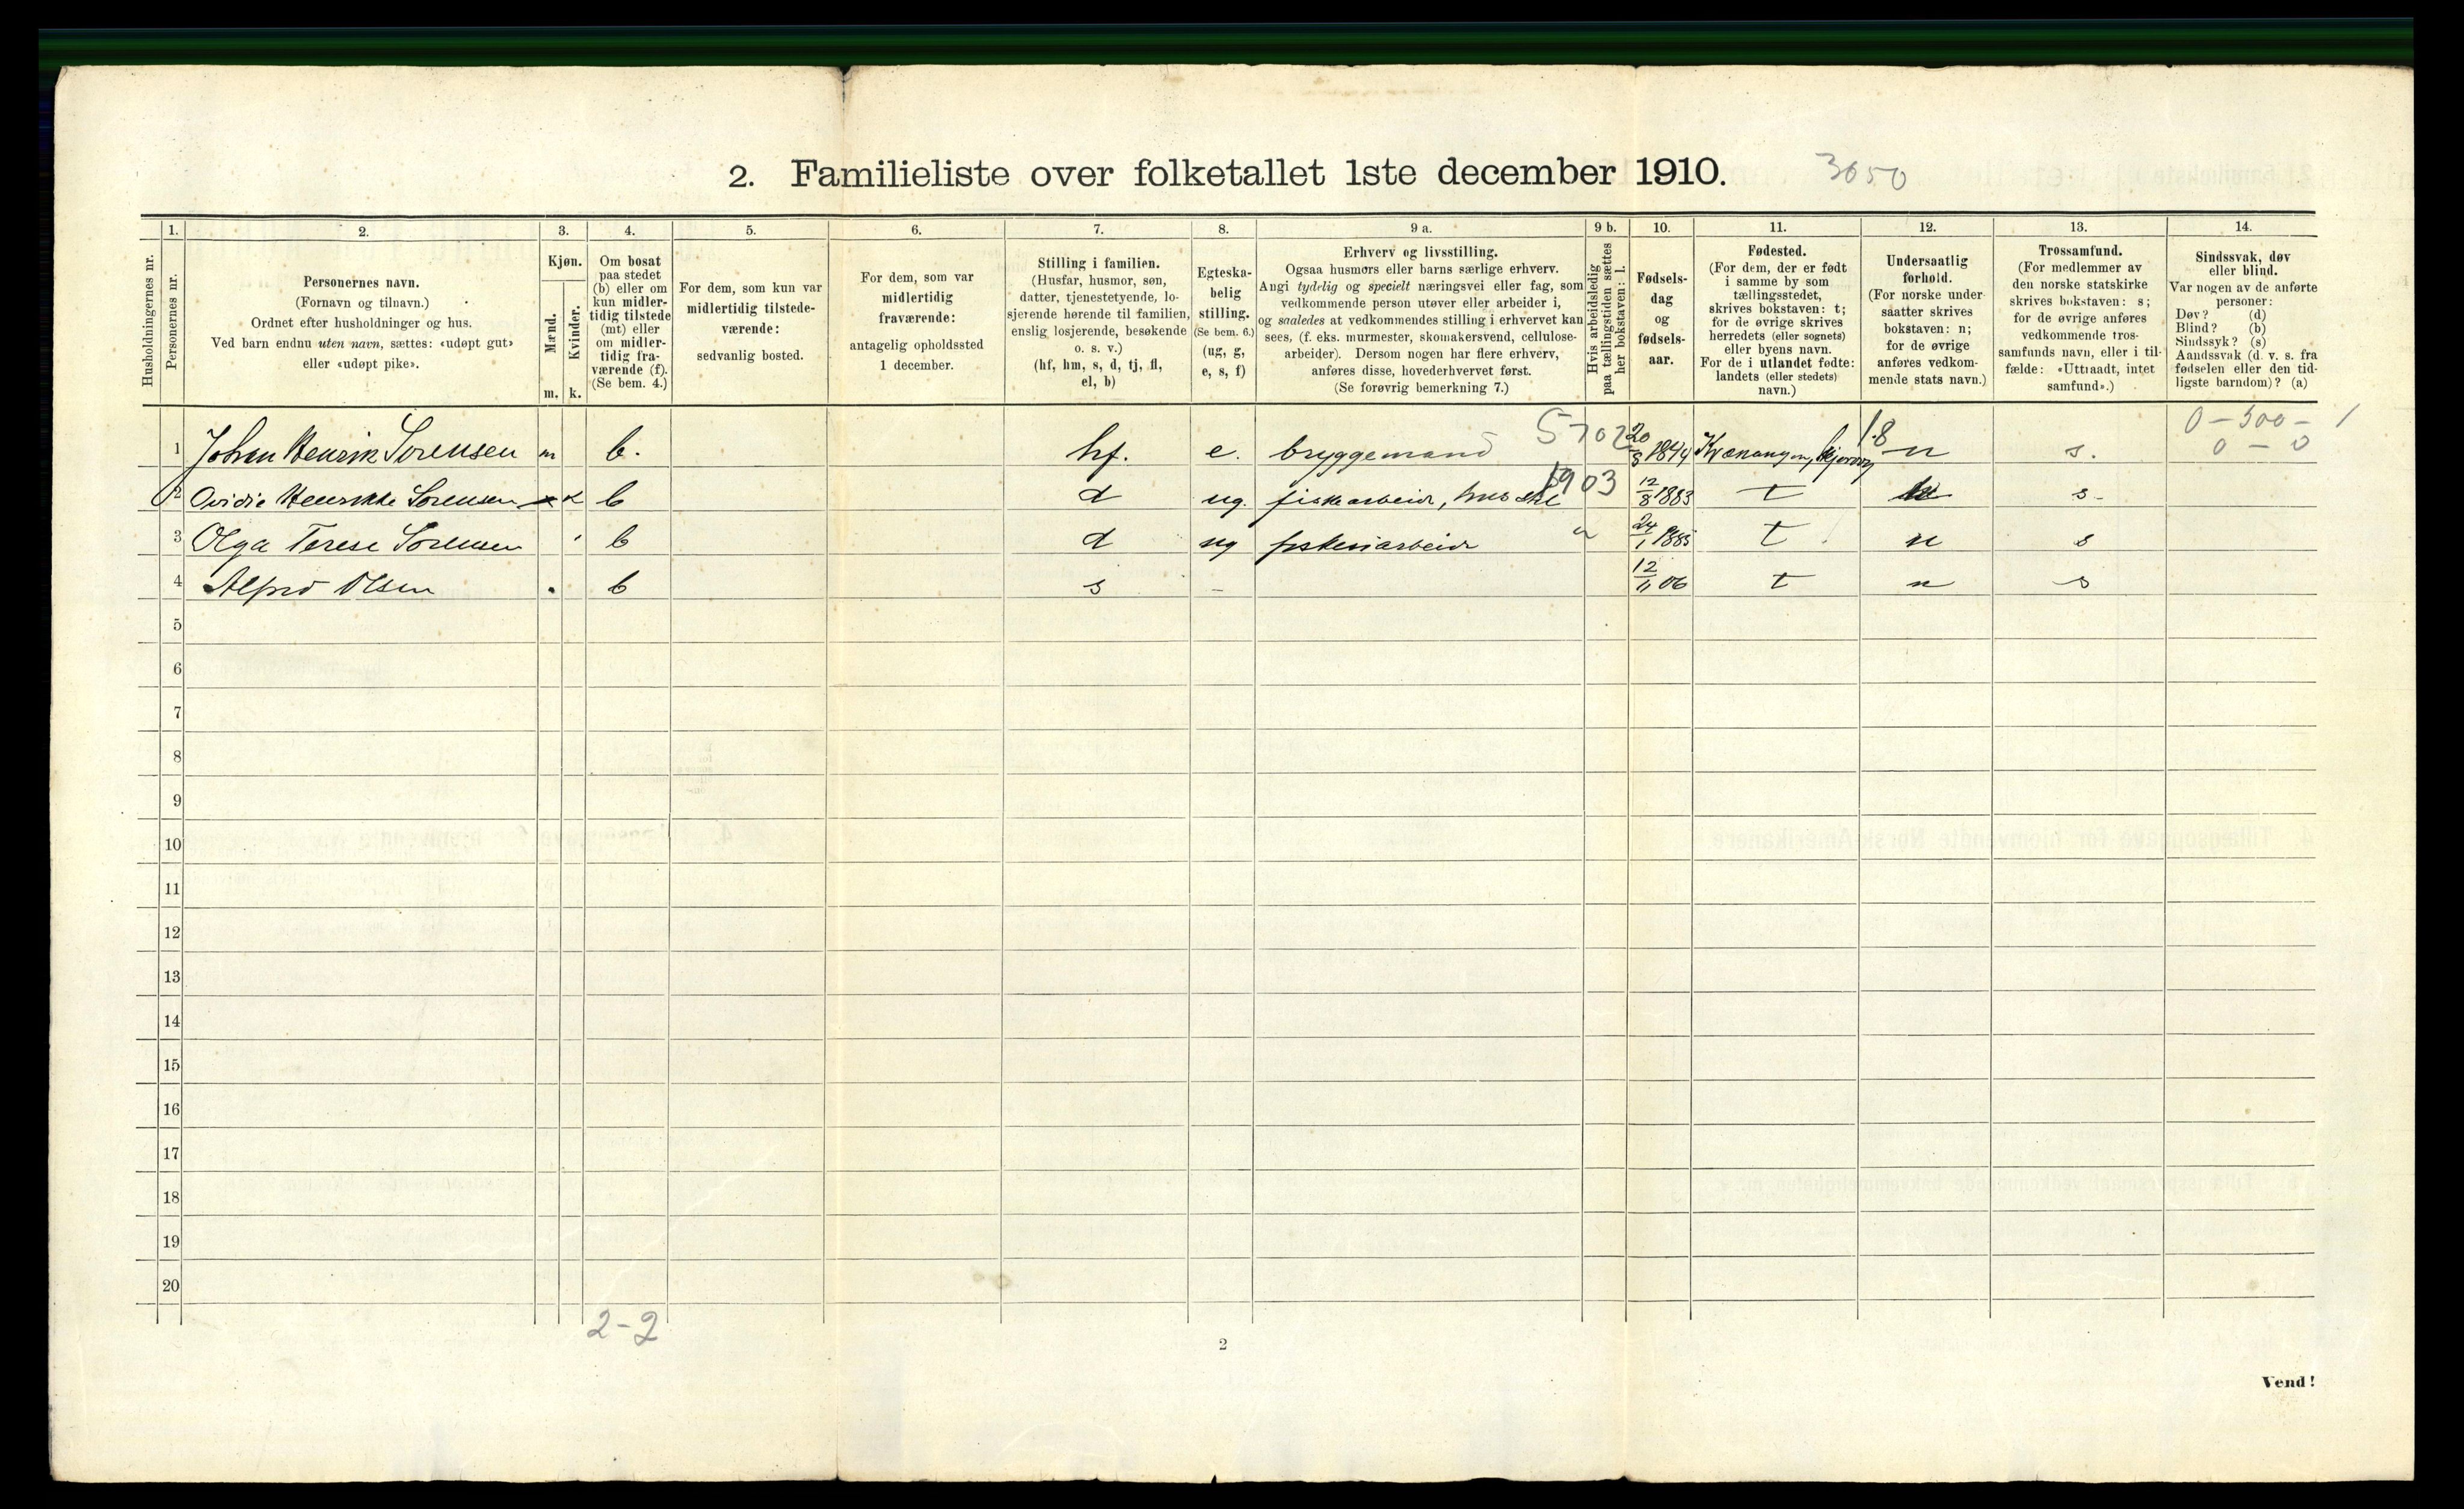 2. Familieliste over folketallet 1ste december 1910. 3650
Husholdningernes nr.
1. Personernes nr.
2. Personernes navn.
(Fornavn og tilnavn.)
Ordnet efter husholdninger og hus.
Ved barn endnu uten navn, sættes: «udøpt gut»
eller «udøpt pike».
3. Kjøn.
Mænd. m.
Kvinder. k.
4. Om bosat
paa stedet
(b) eller om
kun midler-
tidig tilstede
(mt) eller
om midler-
tidig fra-
værende (f).
(Se bem. 4.)
5. For dem, som kun var
midlertidig tilstede-
værende:
sedvanlig bosted.
6. For dem, som var
midlertidig
fraværende:
antagelig opholdssted
1 december.
7. Stilling i familien.
(Husfar, husmor, søn,
datter, tjenestetyende, lo-
sjerende hørende til familien,
enslig losjerende, besøkende
o. s. v.)
(hf, hm, s, d, tj, fl,
el, b)
8. Egteska-
belig
stilling.
(Se bem. 6.)
(ug, g,
e, s, f)
9 a. Erhverv og livsstilling.
Ogsaa husmors eller barns særlige erhverv.
Angi tydelig og specielt næringsvei eller fag, som
vedkommende person utøver eller arbeider i,
og saaledes at vedkommendes stilling i erhvervet kan
sees, (f. eks. murmester, skomakersvend, cellulose-
arbeider). Dersom nogen har flere erhverv,
anføres disse, hovederhvervet først.
(Se forøvrig bemerkning 7.)
9 b. Hvis arbeidsledig
paa tællingstiden sættes
her bokstaven: l.
10. Fødsels-
dag
og
fødsels-
aar.
11. Fødested.
(For dem, der er født
i samme by som
tællingsstedet,
skrives bokstaven: t;
for de øvrige skrives
herredets (eller sognets)
eller byens navn.
For de i utlandet fødte:
landets (eller stedets)
navn.)
12. Undersaatlig
forhold.
(For norske under-
saatter skrives
bokstaven: n;
for de øvrige
anføres vedkom-
mende stats navn.)
13. Trossamfund.
(For medlemmer av
den norske statskirke
skrives bokstaven: s;
for de øvrige anføres
vedkommende tros-
samfunds navn, eller i til-
fælde: «Uttraadt, intet
samfund».)
14. Sindssvak, døv
eller blind.
Var nogen av de anførte
personer:
Døv? (d)
Blind? (b)
Sindssyk? (s)
Aandssvak (d. v. s. fra
fødselen eller den tid-
ligste barndom)? (a)
5702 18 0-500-1
1 Johan Henrik Sørensen m b. hf. e. bryggemand 20/8 1844 Kvænangen, Skjervøy n s. 0-0
5903
2 Ovidie Henrikke Sørensen k b d ug. fiskearbeide, hus stel 12/8 1883 t n s
3 Olga Terese Sørensen b d ug fiskeriarbeide " 24/1 1885 t n s
4 Alfred Olsen b s - 12/11 06 t n s
5
6
7
8
9
10
11
12
13
14
15
16
17
18
19
20
2-2
2
Vend!